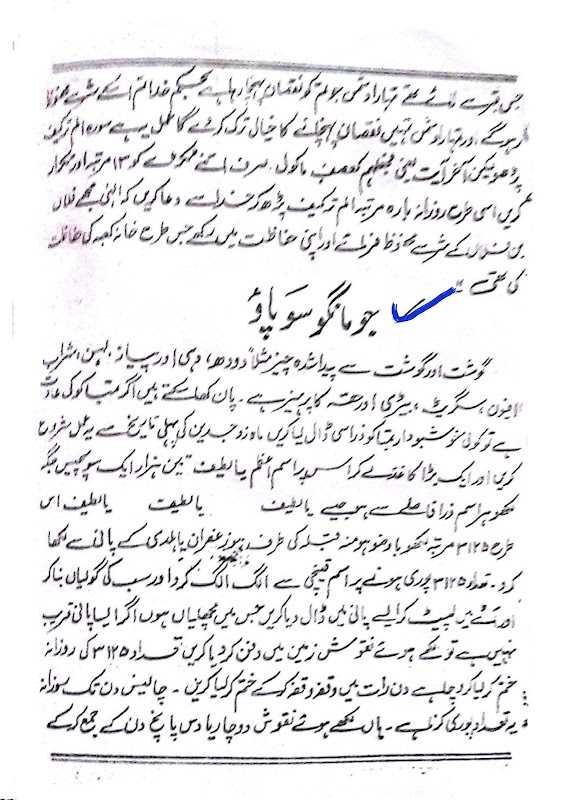 جس ترے لئے تمہارا دشمن جو تم کو نقصان پہنچا رہا ہے بحکم خدا تم اسکے شر سے محفوظ
رہو گے اور تمہارا دشمن تمہیں نقصان پہنچانے کا خیال ترک کر دے گا عمل یہ ہے سورہ الم ترکیف
پڑھو لیکن آخر آیت یعنی فجعلہم کعصف ماکول۔ صرف اتنے ٹکڑے کو ۱۳ مرتبہ اور تکرار
کریں اسی طرح روزانہ بارہ مرتبہ الم ترکیف پڑھ کر خدا سے دعا کریں کہ الٰہی مجھے فلاں
بن فلاں کے شر سے محفوظ فرمائے اور اپنی حفاظت میں رکھے جس طرح خانہ کعبہ کی حفاظت
کی تھی ۔"
جو مانگو سو پاؤ
گوشت اور گوشت سے پیدا شدہ چیز مثلاً دودھ، دہی اور پیاز، لہسن، شراب
افیون، سگریٹ، بیڑی اور حقہ کا پرہیز ہے۔ پان کھا سکتے ہیں اگر تمباکو کی عادت
ہے تو کوئی خوشبودار تمباکو ذرا سی ڈال لیا کریں ماہ نوچندیں کی پہلی تاریخ سے یہ عمل شروع
کریں اور ایک بڑا کاغذ لے کر اس پر اسم اعظم یا لطیف تین ہزار ایک سو پچیس جگہ
لکھو ہر اسم ذرا فاصلے سے ہو جیسے یا لطیف یا لطیف یا لطیف اس
طرح ۳۱۲۵ مرتبہ لکھو با وضو ہو منہ قبلہ کی طرف ہو زعفران یا ہلدی کے پانی سے لکھا
کرو۔ تعداد ۳۱۲۵ پوری ہونے پر اسم قینچی سے الگ الگ کر دو اور سب کی گولیاں بنا کر
اور آٹے میں لپیٹ کر ایسے پانی میں ڈال دیا کریں جس میں مچھلیاں ہوں اگر ایسا پانی قریب
نہیں ہے تو لکھے ہوئے نقوش زمین میں دفن کر دیا کریں تعداد ۳۱۲۵ کی روزانہ
ختم کر لیا کرو چاہے دن رات میں وقفہ وقفہ کر کے ختم کر لیا کریں۔ چالیس دن تک روزانہ
یہ تعداد پوری کرنا ہے۔ ہاں لکھے ہوئے نقوش دو چار یا دس پانچ دن کے جمع کر کے